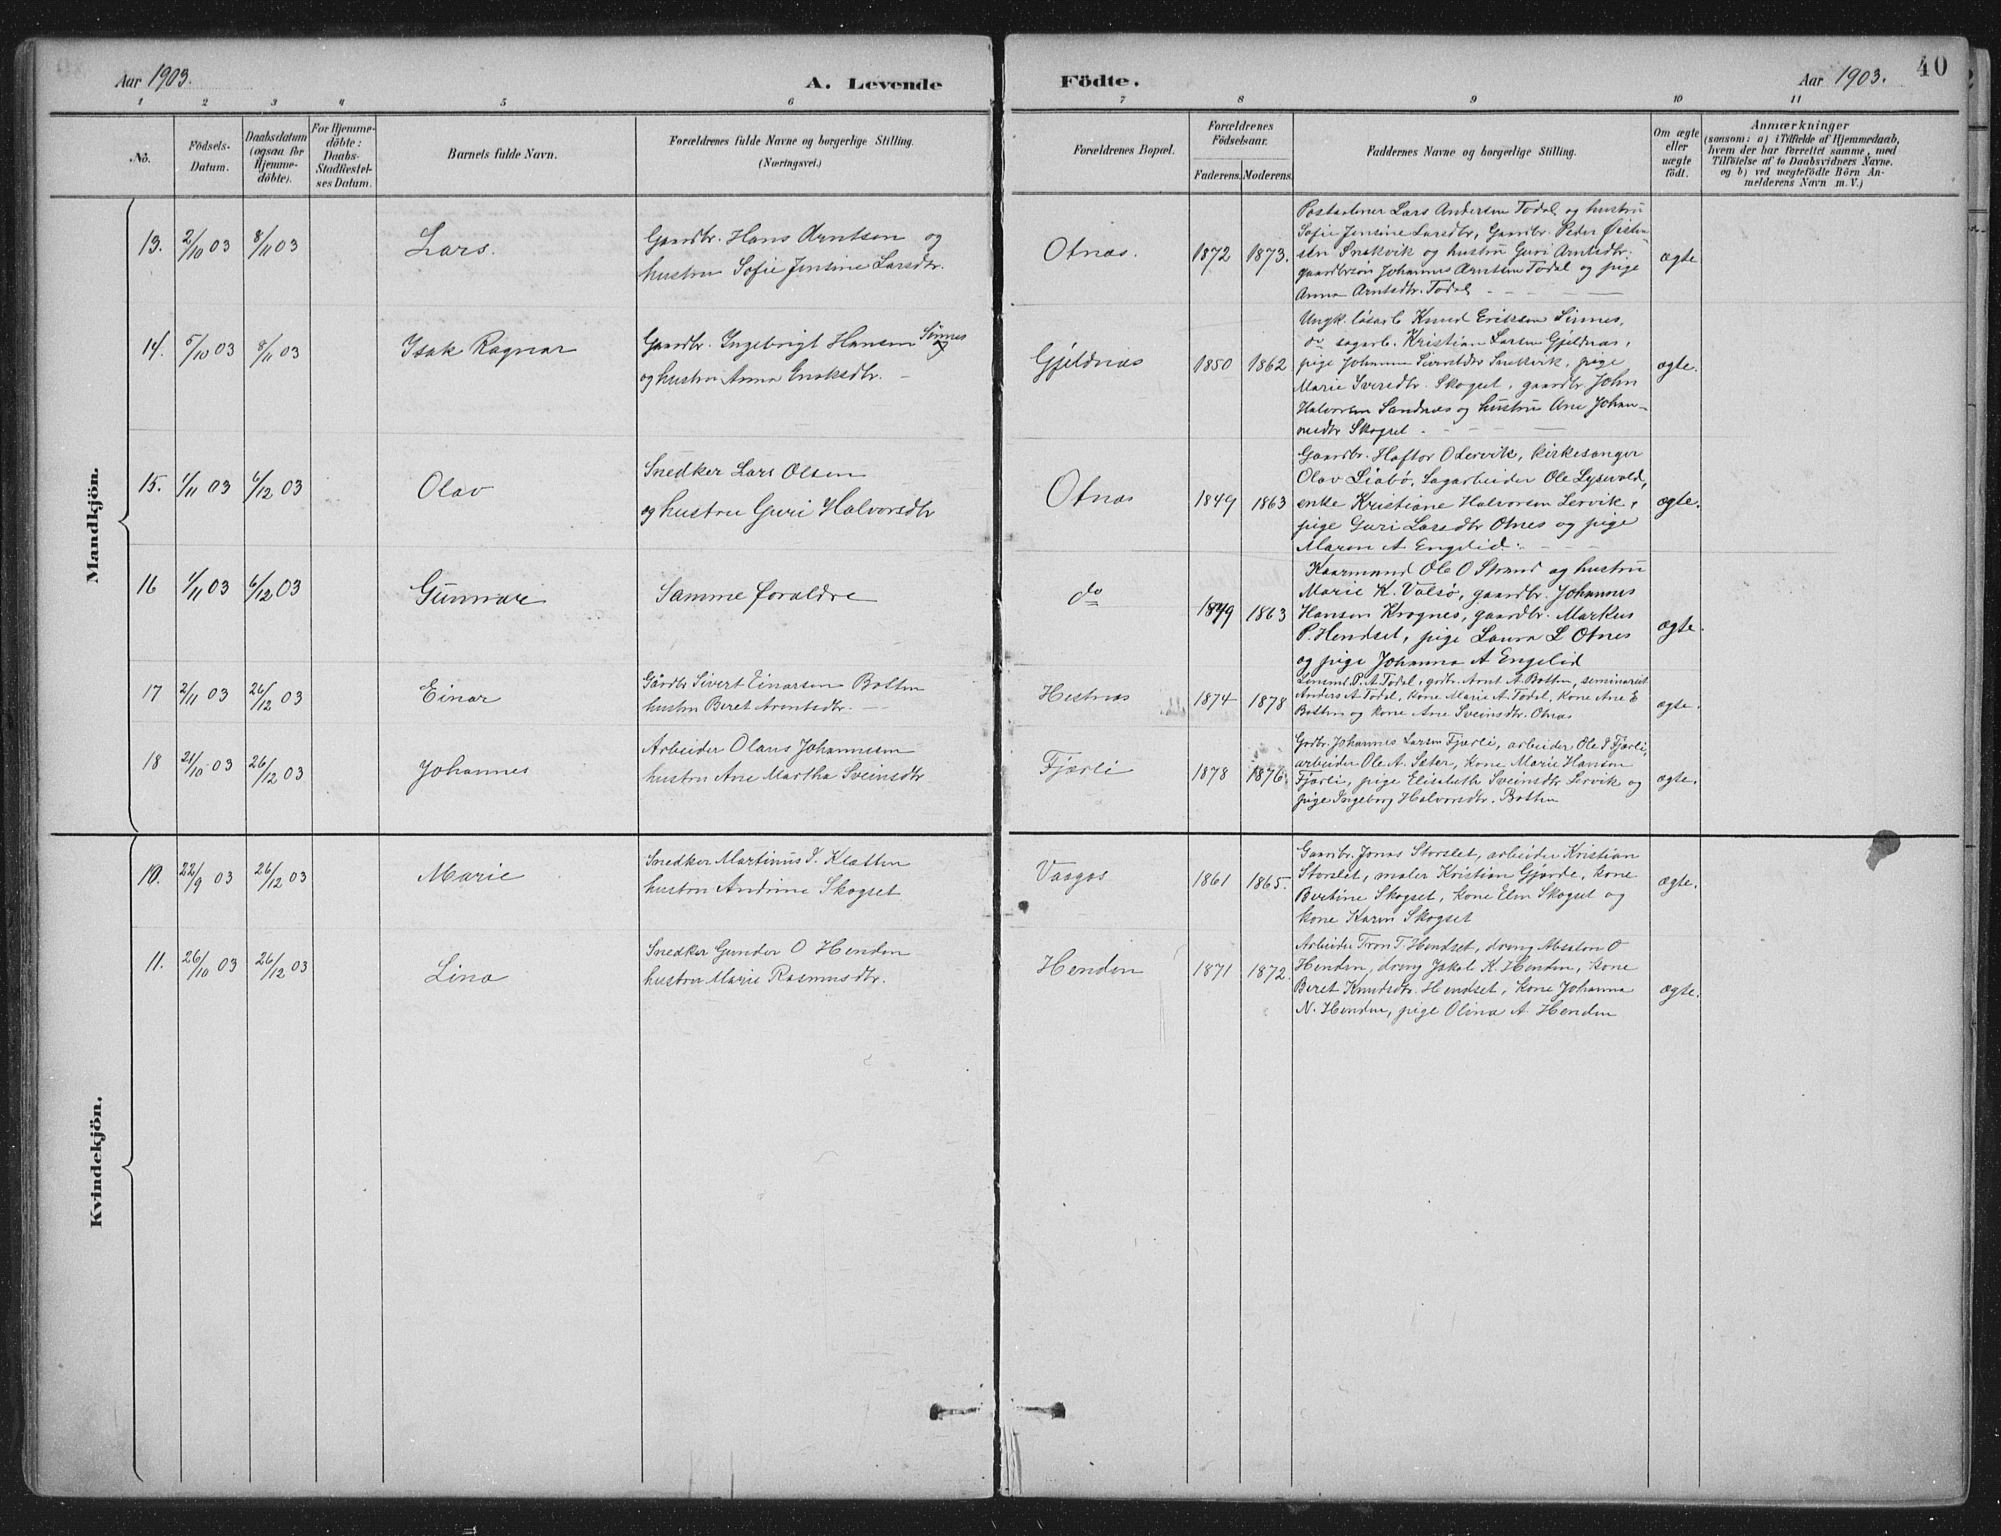 Aar 1903.
A. Levende
Födte.
Aar 1903.
40
1 2 3 4 5 6 7 8 9 10 11
No.
Födsels-
Datum.
Daabsdatum
(ogsaa for
Hjemme-
döbte).
For Hjemme-
döbte:
Daabs-
Stadfæstel-
ses Datum.
Barnets fulde Navn.
Forældrenes fulde Navne og borgerlige Stilling.
(Næringsvei.)
Forældrenes Bopæl.
Forældrenes
Födselsaar.
Faderens. Moderens.
Faddernes Navne og borgerlige Stilling.
Om ægte
eller
uægte
födt.
Anmærkninger
(saasom: a) i Tilfælde af Hjemmedaab,
hvem der har forrettet samme, med
Tilföielse af to Daabsvidners Navne.
og b) ved uægtefödte Börn An-
melderens Navn m. V.)
Mandkjön.
13. 2/10 03 8/11 03 Lars.
Gaardbr. Hans Arntsen og
hustru Sofie Jensine Larsdtr.
Otnæs. 1872 1873.
Postaabner Lars Andersen Todal og hustru
Sofie Jensine Larsdtr, Gaardbr. Peder Øisten
sen Snekvik og hustru Guri Arntsdtr.
gaardbrsøn Johannes Arntsen Todal og pige
Anna Arntsdtr. Todal
ægte
14. 5/10 03 8/11 03 Isak Ragnar
Gaardbr. Ingebrigt Hansen Sinnes
og hustru Anna Eriksdtr.
Gjeldnæs 1850 1862
Ungk. løsarb Knud Eriksen Sinnes,
do sagarb. Kristian Larsen Gjeldnæs,
pige Johanna Sivertsdtr Snekvik, pige
Marie Sivertsdtr. Skogset, gaardbr. John
Halvorsen Sandnæs og hustru Ane Johan-
nesdtr Skogset.
ægte.
15. 1/11 03 6/12 03 Olav
Snedker Lars Olsen
og hustru Guri Halvorsdtr
Otnæs 1849 1863
Gaardbr. Haftor O Lervik, kirkesanger
Olav Liabø, Sagarbeider Ole Lysevold,
enke Kristiane Halvorsen Lervik,
pige Guri Larsdtr Otnes og pige
Maren A Engelid.
ægte.
16 1/11 03 6/12 03 Gunnar
Samme forældre
do 1849 1863
Kaarmand Ole O Strand og hustru
Marie K. Valsø, gaardbr. Johannes
Hansen Krognes, gaardbr. Markus
P. Hendset, pige Laura L Otnes
og pige Johanna A Engelid
ægte.
17 2/11 03 26/12 03 Einar
Gårdbr Sivert Einarsen Botten
hustru Beret Arentsdtr.
Hestnæs 1874 1878
P. A. Todal, gdbr. Arnt A. Botten, seminarist
Anders A. Todal, kone Marie A. Todal, kone Ane E
Botten og kone Ane Sveinsdtr. Otnæs
ægte.
18 31/10 03 26/12 03 Johannes
Arbeider Olaus Johannesen
hustru Ane Martha Sveinsdtr
Fjærli 1878 1876
Gdbr. Johannes Larsen Fjærli, arbeider Ole I Fjærli,
arbeider Ole A. Sæter, kone Marie Hansen
Fjærli, pige Elisabeth Sveinsdtr Lervik og
pige Ingeborg Halvorsdtr. Botten
ægte.
Kvindekjön.
10. 22/9 03 26/12 03 Marie
Snedker Martinus I. Kletten
hustru Andrine Skogset
Vaagos 1861 1865.
Gaardbr. Jonas Storslet, arbeider Kristian
Storslet, maler Kristian Gjørde, kone
Bertine Skogset, kone Elen Skogset og
kone Karen Skogset
ægte.
11. 26/10 03 26/12 03 Lina
Snedker Gunder O Henden
hustru Marie Rasmusdtr.
Henden 1871 1872.
Arbeider Tron T. Hendset, dreng Absalon O
Henden, dreng Jakob K. Henden, kone
Beret Knudsdtr. Hendset, kone Johanna
N. Henden, pige Olina A Henden
ægte.